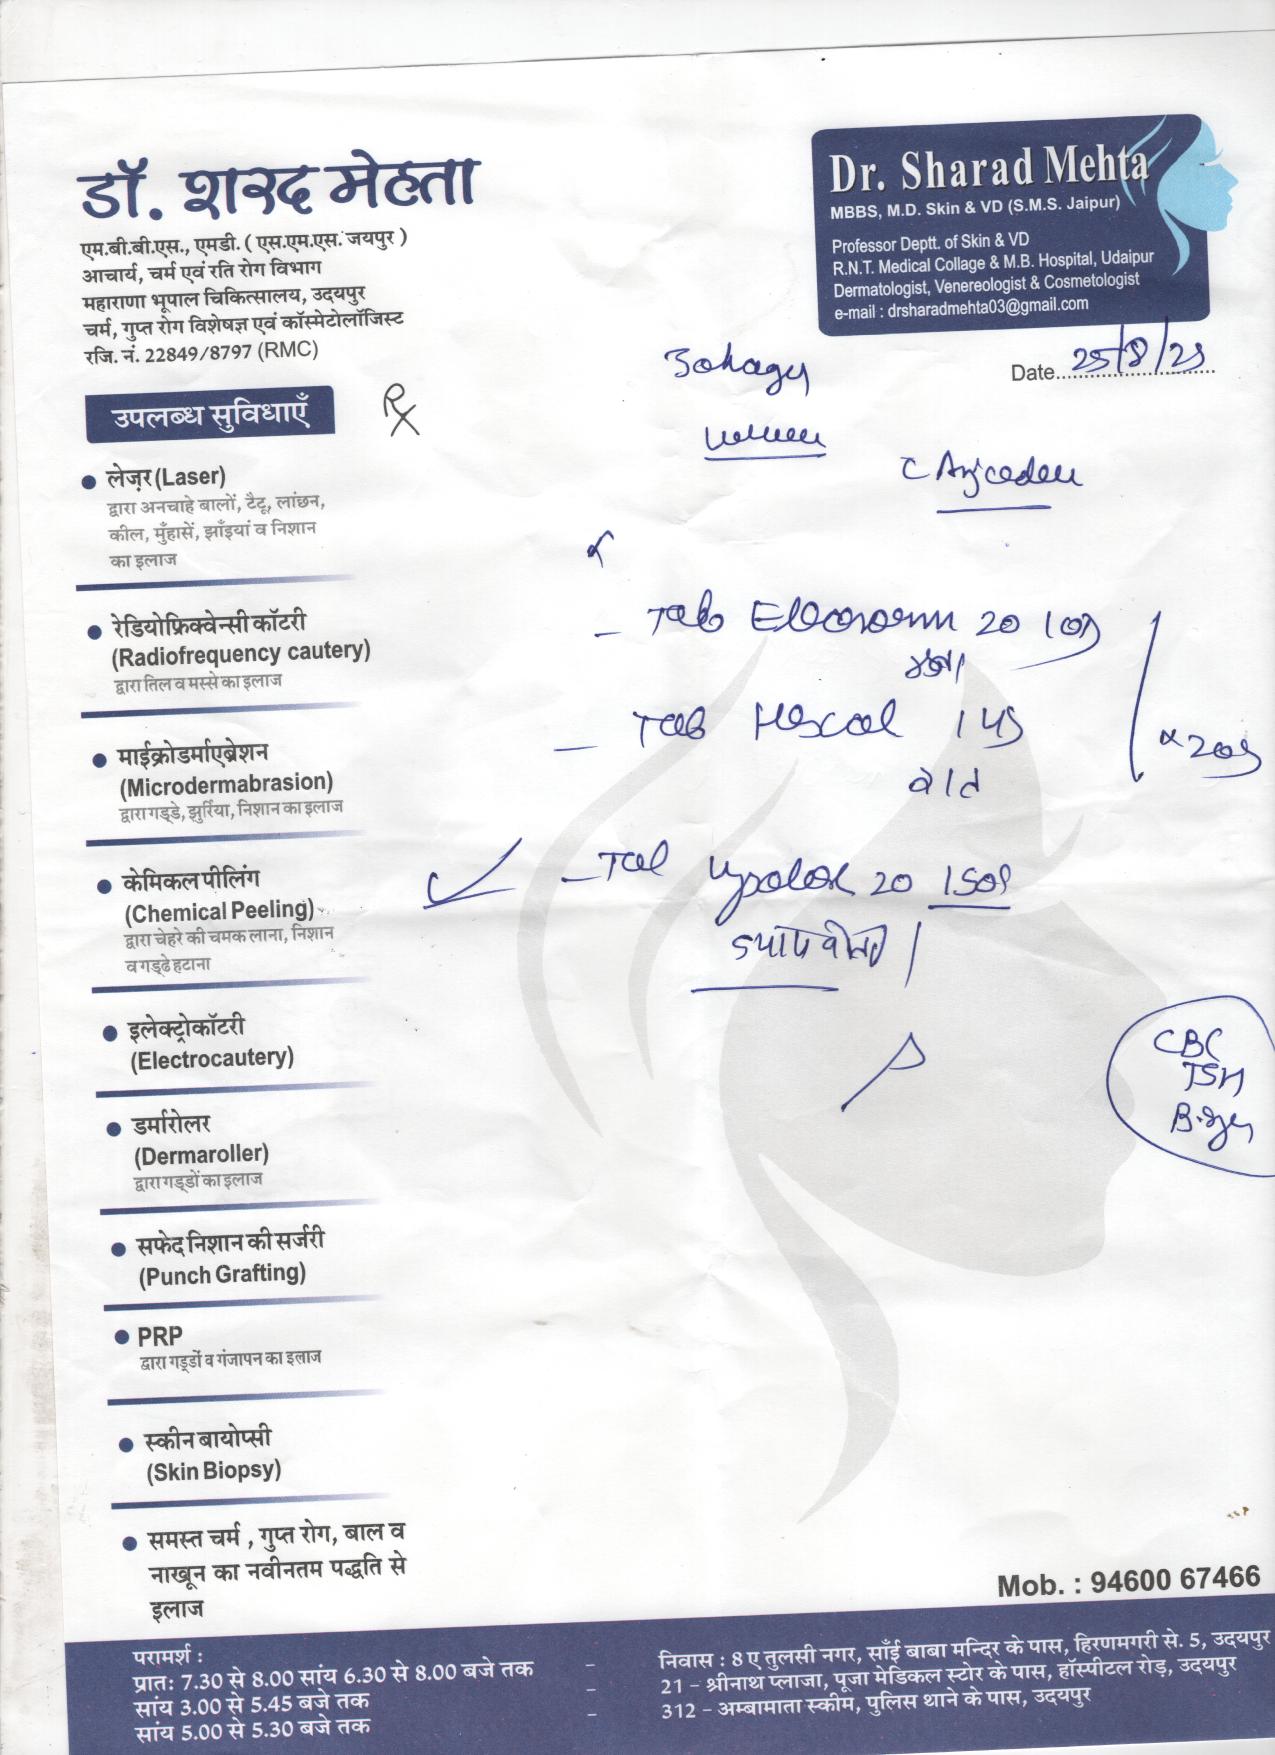 डॉ. शरद मेहता
एम.बी.बी.एस., एमडी. ( एस.एम.एस. जयपुर )
आचार्य, चर्म एवं रति रोग विभाग
महाराणा भूपाल चिकित्सालय, उदयपुर
चर्म, गुप्त रोग विशेषज्ञ एवं कॉस्मेटोलॉजिस्ट
रजि. नं. 22849/8797 (RMC)
Dr. Sharad Mehta
MBBS, M.D. Skin & VD (S.M.S. Jaipur)
Professor Deptt. of Skin & VD
R.N.T. Medical Collage & M.B. Hospital, Udaipur
Dermatologist, Venereologist & Cosmetologist
e-mail : drsharadmehta03@gmail.com
Date
उपलब्ध सुविधाएँ
Rx
• लेज़र (Laser)
द्वारा अनचाहे बालों, टैटू, लांछन,
कील, मुँहासें, झाँइयां व निशान
का इलाज
• रेडियोफ्रिक्वेन्सी कॉटरी
(Radiofrequency cautery)
द्वारा तिल व मस्से का इलाज
• माईक्रोडर्माएब्रेशन
(Microdermabrasion)
द्वारा गड्डे, झुर्रिया, निशान का इलाज
• केमिकल पीलिंग
(Chemical Peeling)
द्वारा चेहरे की चमक लाना, निशान
व गड्ढे हटाना
• इलेक्ट्रोकॉटरी
(Electrocautery)
• डर्मारोलर
(Dermaroller)
द्वारा गड्डों का इलाज
• सफेद निशान की सर्जरी
(Punch Grafting)
• PRP
द्वारा गड्डों व गंजापन का इलाज
• स्कीन बायोप्सी
(Skin Biopsy)
• समस्त चर्म , गुप्त रोग, बाल व
नाखून का नवीनतम पद्धति से
इलाज
- Tab 20
- Tab
- Tab 20
CBC
TSH
Mob. : 94600 67466
परामर्श :
प्रात: 7.30 से 8.00 सांय 6.30 से 8.00 बजे तक
सांय 3.00 से 5.45 बजे तक
सांय 5.00 से 5.30 बजे तक
– निवास : 8 ए तुलसी नगर, साँई बाबा मन्दिर के पास, हिरणमगरी से. 5, उदयपुर
– 21 – श्रीनाथ प्लाजा, पूजा मेडिकल स्टोर के पास, हॉस्पीटल रोड़, उदयपुर
– 312 – अम्बामाता स्कीम, पुलिस थाने के पास, उदयपुर